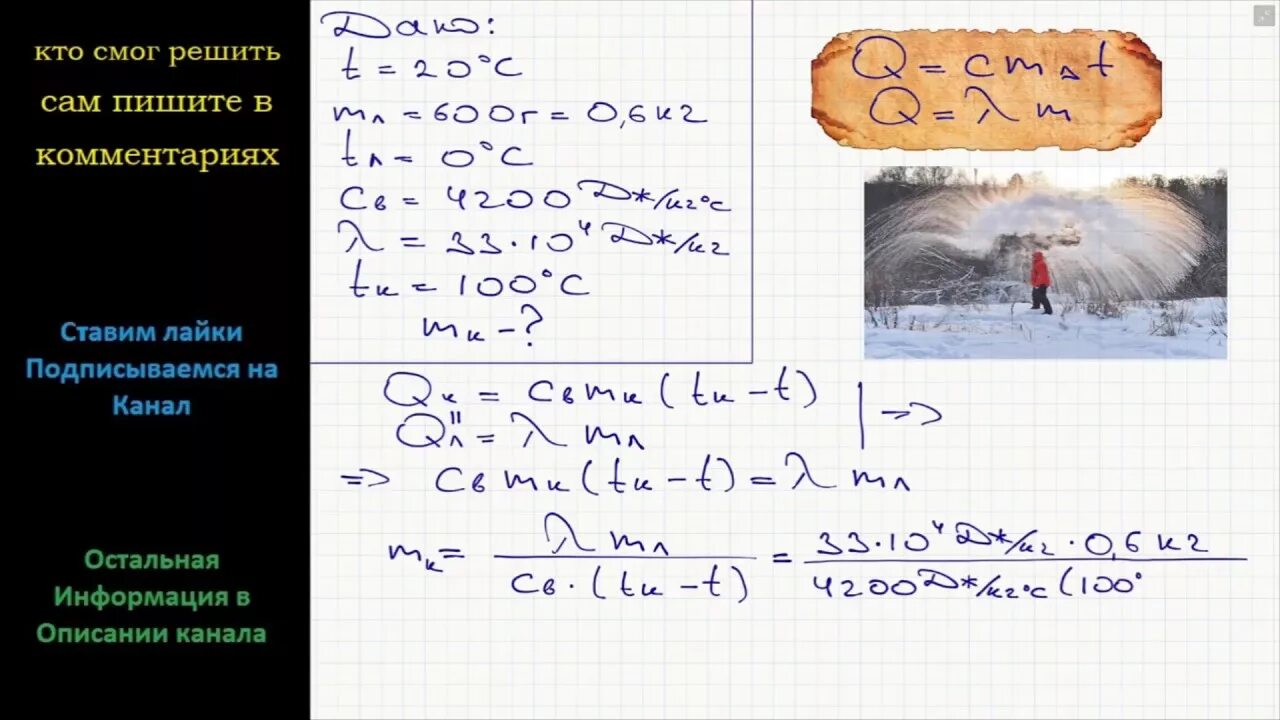 кто смог решить
сам пишите в
комментариях
Ставим лайки
Подписываемся на
Канал
Остальная
Информация в
Описании канала
Дано:
t = 20°C
mл = 600г = 0,6 кг
tл = 0°C
Cв = 4200 Дж/кг°C
λ = 33·10⁴ Дж/кг
tк = 100°C
mк - ?
Q = cmΔt
Q = λm
Qк = Cв mк (tк - t)
Qл = λ mл
=> Cв mк (tк - t) = λ mл
mк = λ mл / Cв · (tк - t) = 33·10⁴ Дж/кг · 0,6 кг / 4200 Дж/кг°C (100°